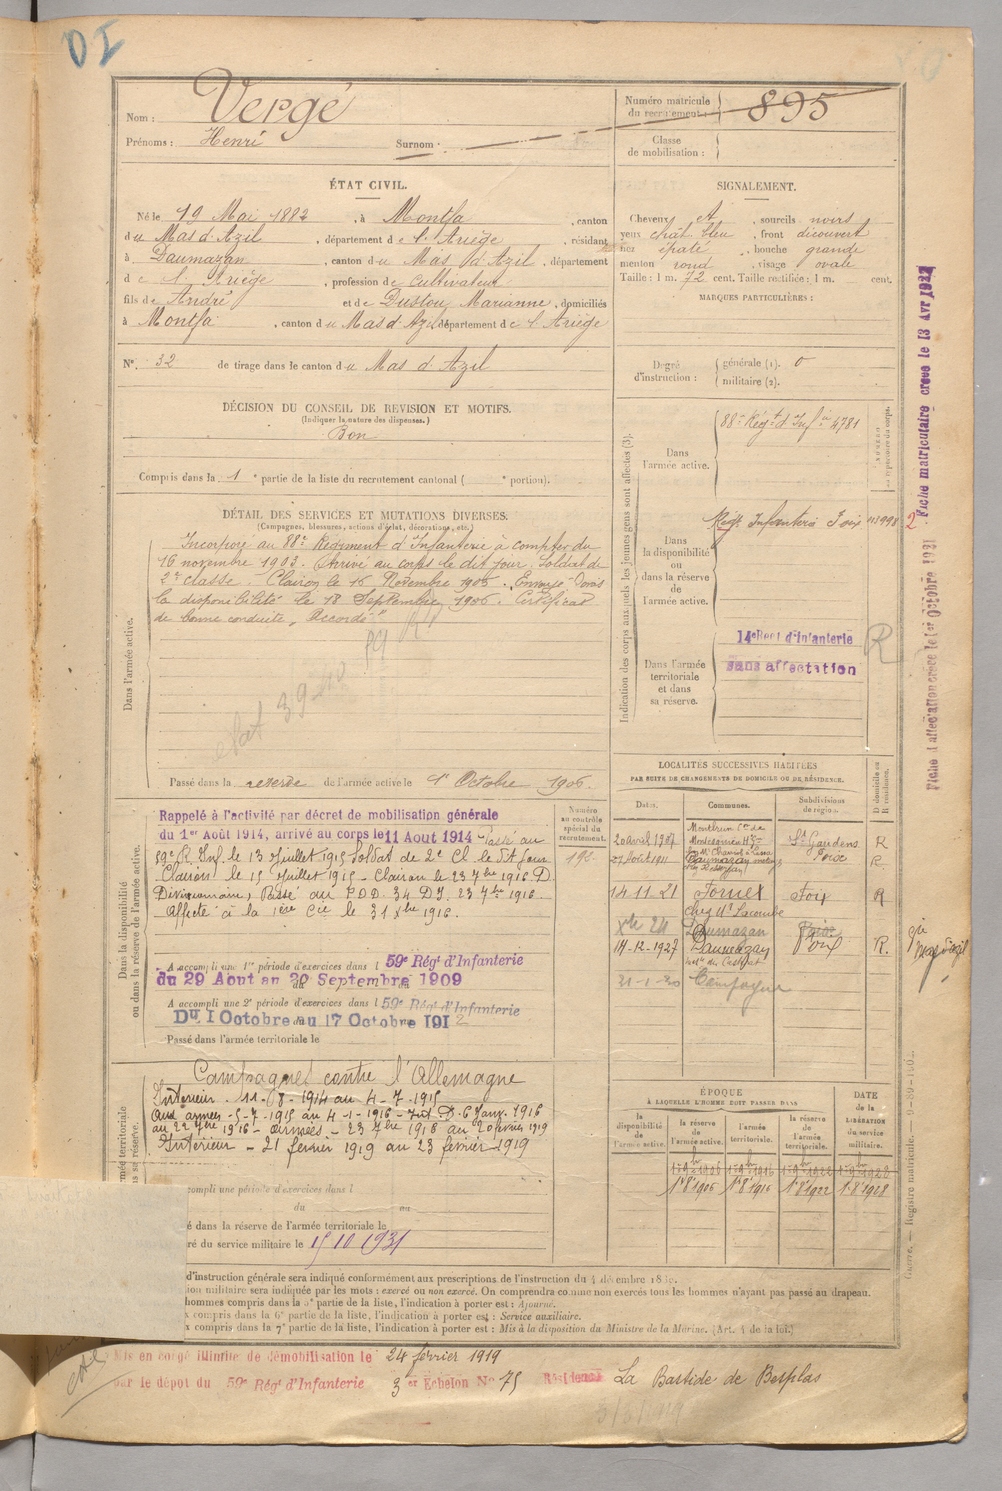 Nom : Vergé
Prénoms : Henri Surnom :
Numéro matricule
du recrutement : 895
Classe
de mobilisation :
ÉTAT CIVIL.
Né le 19 Mai 1882, à Montfa, canton
du Mas d'Azil, département de l'Ariège, résidant
à Daumazan, canton du Mas d'Azil, département
de l'Ariège, profession de cultivateur
fils de André et de Dustou, Marianne, domiciliés
à Montfa, canton du Mas d'Azil, département de l'Ariège
N°. 32 de tirage dans le canton du Mas d'Azil
SIGNALEMENT.
Cheveux, sourcils noirs
yeux chat. bleu, front découvert
nez épaté, bouche grande
menton rond, visage ovale
Taille : 1 m. 72 cent. Taille rectifiée : 1 m. cent.
MARQUES PARTICULIÈRES :
Degré
d'instruction :
générale (1). 0
militaire (2).
DÉCISION DU CONSEIL DE REVISION ET MOTIFS.
(Indiquer la nature des dispenses.)
Bon
Compris dans la 1e partie de la liste du recrutement cantonal ( e portion).
DÉTAIL DES SERVICES ET MUTATIONS DIVERSES.
(Campagnes, blessures, actions d'éclat, décorations, etc.)
Dans l'armée active.
Incorporé au 88e Régiment d'Infanterie à compter du
16 novembre 1903. Arrivé au corps le dit jour. Soldat de
2e classe. Clairon le 16 Novembre 1905. Envoyé dans
la disponibilité le 18 Septembre 1906. Certificat
de bonne conduite "Accordé"
Passé dans la réserve de l'armée active le 1er Octobre 1906.
Indication des corps auxquels les jeunes gens sont affectés (3).
Dans
l'armée active.
88e Régt d'Infie 4781
Dans
la disponibilité
ou
dans la réserve
de
l'armée active.
Régt Infanterie Foix
Dans l'armée
territoriale
et dans
sa réserve.
14e Regt d'Infanterie
sans affectation
R
Fiche d'affectation créée le 1er Octobre 1931
Fiche matriculaire créée le 13 Avr 1932
Dans la disponibilité
ou dans la réserve de l'armée active.
Rappelé à l'activité par décret de mobilisation générale
du 1er Août 1914, arrivé au corps le 11 Aout 1914 Passé au
59e R. Inf. le 13 Juillet 1915 Soldat de 2e Cl le dit jour
Clairon le 15 Juillet 1915 - Clairon le 23 7bre 1916 D
Divisionnaire, Passé au 34 DI. 23 7bre 1916
Affecté à la 1ère Cie le 31 Xbre 1916.
Numéro
au contrôle
spécial du
recrutement.
A accompli une 1re période d'exercices dans l 59e Régt d'Infanterie
du 29 Aout au 20 Septembre 1909
A accompli une 2e période d'exercices dans l 59e Régt d'Infanterie
Du 1 Octobre au 17 Octobre 1912
Passé dans l'armée territoriale le
LOCALITÉS SUCCESSIVES HABITÉES
PAR SUITE DE CHANGEMENTS DE DOMICILE OU DE RÉSIDENCE.
Dates. Communes. Subdivisions de région. D domicile ou R résidence.
20 avril 1907 St Gaudens R
Août 1911 Daumazan Foix R
14 11. 21 Fornex Foix R
chez Mr Lacombe
Xbre 24 Daumazan
14-12-1927 Daumazan Foix R.
21-1-30 Campagne
Campagnes contre l'Allemagne
Intérieur. 11-08-1914 au 4-7-1915
Aux armées - 5-7-1915 au 4-1-1916 - Int D. 6 Janv. 1916
au 22 7bre 1916 - armées - 23 7bre 1916 au 20 février 1919
Intérieur - 21 février 1919 au 23 février 1919
ompli une période d'exercices dans l
du au
é dans la réserve de l'armée territoriale le
ré du service militaire le 15 10 1931
ÉPOQUE
À LAQUELLE L'HOMME DOIT PASSER DANS
la disponibilité de l'armée active. la réserve de l'armée active. l'armée territoriale. la réserve de l'armée territoriale.
DATE
de la
LIBÉRATION
du service
militaire.
Registre matricule.
d'instruction générale sera indiqué conformément aux prescriptions de l'instruction du 4 décembre
ion militaire sera indiquée par les mots : exercé ou non exercé. On comprendra comme non exercés tous les hommes n'ayant pas passé au drapeau.
hommes compris dans la 5e partie de la liste, l'indication à porter est : Ajourné.
x compris dans la 6e partie de la liste, l'indication à porter est : Service auxiliaire.
x compris dans la 7e partie de la liste, l'indication à porter est : Mis à la disposition du Ministre de la Marine. (Art. 4 de la loi.)
Mis en congé illimité de démobilisation le 24 février 1919
par le dépôt du 59e Régt d'Infanterie 3er Echelon N° 75 Résidence La Bastide de Besplas